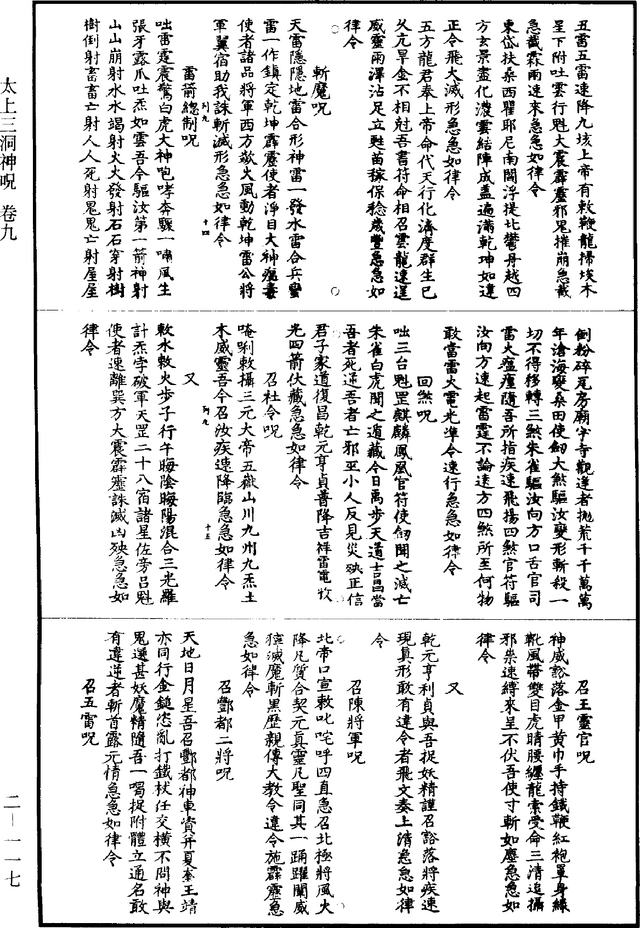 五雷五雷速降九垓上帝有敕鞭龍掃埃木
呈下附吐雲行魁大震霹靂邪鬼摧崩急截
急截霖雨速來急急如律令
東岱扶桑西瞿耶尼南閻浮提北鬱丹越四
方玄景盡化濃雲結陣成蓋遍滿乾坤如違
正令飛火滅形急急如律令
五方龍君奉上帝命代天行化濟度群生巳
久亢旱金不相尅吾書符命相召雲龍遠逞
威靈雨澤沾足立甦苗稼保稔歲豐急急如
律令
斬魔呪
天雷隱隱地雷合形神雷一發水雷合兵蠻
雷一作鎮定乾坤霹靂使者淨目大神瘟毒
使者諸品將軍西方欻火風動乾坤雷公將
軍翼宿助我誅斬滅形急急如律令
雷箭總制呪
咄雷霆震驚白虎大神咆哮奔驟一嘯風生
張牙露爪吐炁如雲吾今驅汝第一箭神射
山山崩射水水竭射火火發射石石穿射樹
樹倒射畜畜亡射人人死射鬼鬼亡射屋屋
倒粉碎瓦房廟宇寺觀違者拋荒千千萬萬
年滄海變桑田使劒大煞驅汝變形斬殺一
切不得移轉三煞朱雀驅汝向方口舌官司
雷火瘟𤺉隨吾所指疾速飛揚四煞官符驅
汝向方速起雷霆不論遠方四煞所至何物
敢當雷火電光準令速行急急如律令
回煞呪
咄三台魁罡麒麟鳳凰官符使劒聞之滅亡
朱雀白虎聞之遁藏今日禹步天道吉昌當
吾者死逆吾者亡邪巫小人反見災殃正信
君子家道復昌乾元亨貞普降吉祥雷電收
光四箭伏藏急急如律令
召社令呪
唵唎敕攝三元大帝五嶽山川九州九炁土
木威靈吾今召汝疾速降臨急急如律令
又
敕水敕火步子行午晦陰晦陽混合三光羅
計炁孛破軍天罡二十八宿諸星佐旁呂魁
使者速離巽方大震霹靂誅滅凶殃急急如
律令
召王靈官呪
神威豁落金甲黃巾手持鐵鞭紅袍罩身綠
靴風帶雙目虎睛腰纏龍索受命三清追攝
邪祟速縛來呈不伏吾使寸斬如塵急急如
律令
又
乾元亨利貞與吾捉妖精謹召豁落將疾速
現真形敢有違令者飛文奏上清急急如律
令
召陳將軍呪
北帝口宣敕叱咤呼四直急召北極將風火
降凡質合契元真靈凡聖同其一踊躍闡威
獷滅魔斬黑歷親傳大教令違令施霹靂急
急如律令
召酆都二將呪
天地日月星吾召酆都神車資并夏秦王靖
亦同行金鎚恣亂打鐵杖任交橫不問神與
鬼選甚妖魔精隨吾一喝捉附體立通名敢
有違逆者斬首露元情急急如律令
召五雷呪
太上三洞神呪 卷九
二—一一七